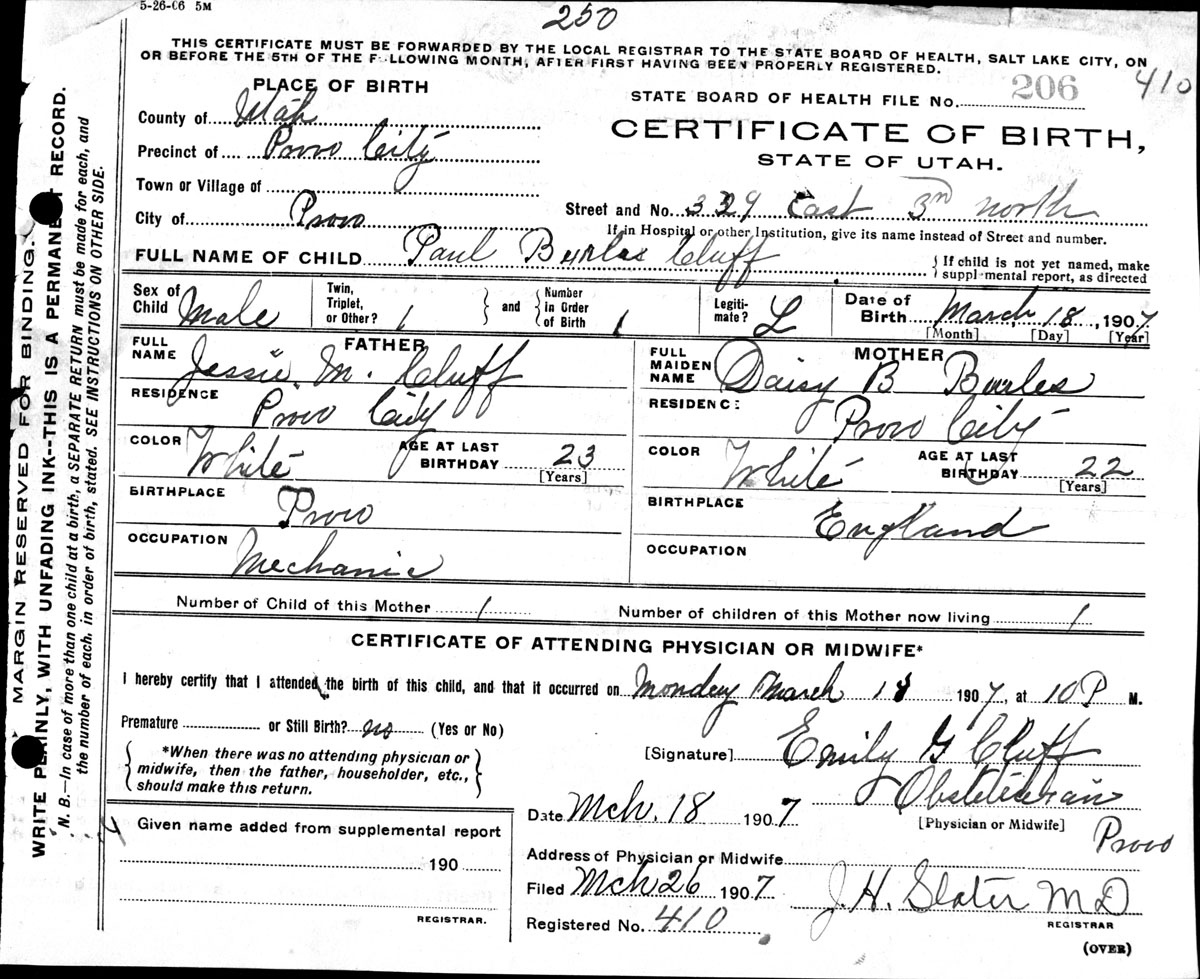 5-26-06 5M
250
THIS CERTIFICATE MUST BE FORWARDED BY THE LOCAL REGISTRAR TO THE STATE BOARD OF HEALTH, SALT LAKE CITY, ON
OR BEFORE THE 5TH OF THE FOLLOWING MONTH, AFTER FIRST HAVING BEEN PROPERLY REGISTERED.
410
PLACE OF BIRTH
STATE BOARD OF HEALTH FILE No. 206
County of Utah
CERTIFICATE OF BIRTH,
Precinct of Provo City
STATE OF UTAH.
Town or Village of
City of Provo
Street and No. 339 East 3rd North
If in Hospital or other Institution, give its name instead of Street and number.
FULL NAME OF CHILD Paul Burles Cluff
{ If child is not yet named, make
supplemental report, as directed
Sex of Child Male
Twin, Triplet, or Other? 1
and
Number in Order of Birth 1
Legitimate? L
Date of Birth March 18, 1907
[Month] [Day] [Year]
FATHER
FULL NAME Jessie M. Cluff
RESIDENCE Provo City
COLOR White
AGE AT LAST BIRTHDAY 23
[Years]
BIRTHPLACE Provo
OCCUPATION Mechanic
MOTHER
FULL MAIDEN NAME Daisy B Burles
RESIDENCE Provo City
COLOR White
AGE AT LAST BIRTHDAY 22
[Years]
BIRTHPLACE England
OCCUPATION
Number of Child of this Mother 1
Number of children of this Mother now living 1
CERTIFICATE OF ATTENDING PHYSICIAN OR MIDWIFE*
I hereby certify that I attended the birth of this child, and that it occurred on Monday March 18 1907, at 10 P M.
Premature or Still Birth? no (Yes or No)
*When there was no attending physician or
midwife, then the father, householder, etc.,
should make this return.
[Signature] Emily G Cluff
Obstetrician
Date Mch. 18 1907
[Physician or Midwife]
Provo
Address of Physician or Midwife
Given name added from supplemental report
190
REGISTRAR.
Filed Mch 26 1907
J. H. Slater M D
REGISTRAR
Registered No. 410
(OVER)
MARGIN RESERVED FOR BINDING.
WRITE PLAINLY, WITH UNFADING INK--THIS IS A PERMANENT RECORD.
N. B.—In case of more than one child at a birth, a SEPARATE RETURN must be made for each, and
the number of each, in order of birth, stated. SEE INSTRUCTIONS ON OTHER SIDE.